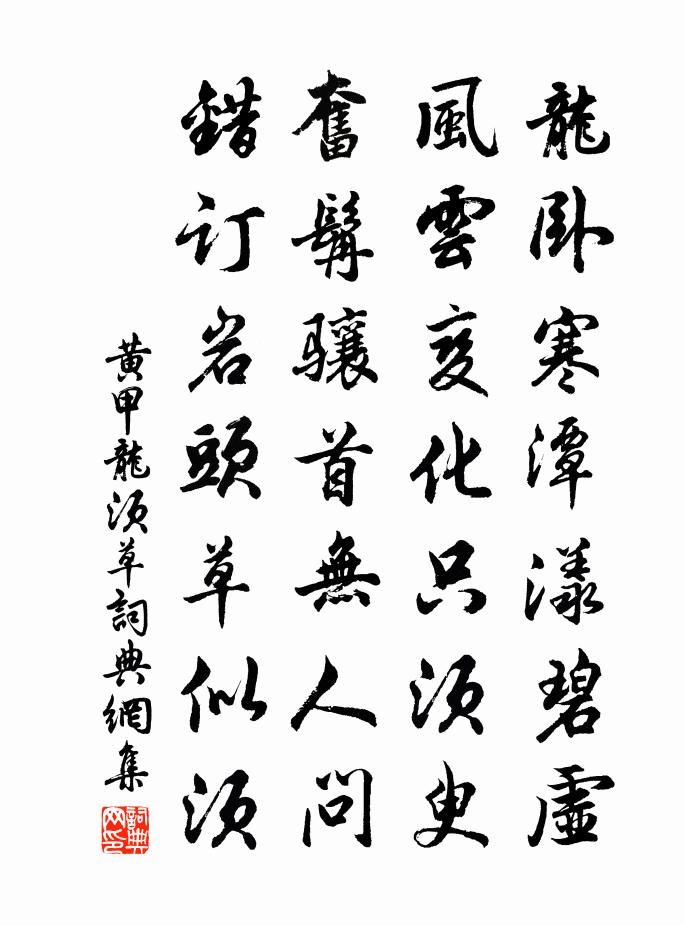 龍卧寒潭漾碧虛
風雲變化只須臾
奮髯驤首無人問
錯訂岩頭草似須
黃甲龍須草詞典網集
詞典网印